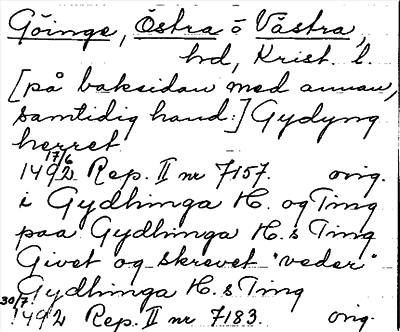 Göinge, Östra o Västra,
hd, Krist. l.
[på baksidan med annan,
samtidig hand:] Gydyng
herret
1492 17/6 Rep. II nr 7157. orig.
i Gydhinga H. og Ting
paa Gydhinga H. s Ting
Givet og skrevet "veder"
Gydhinga H. s Ting
30/7 1492 Rep. II nr 7183. orig.